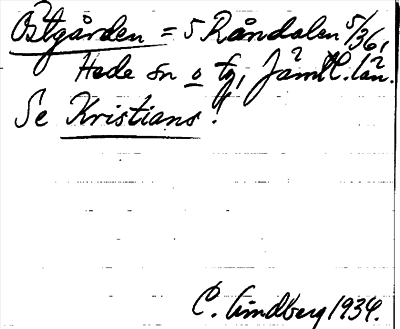 Östgården = 5 Råndalen 5/36,
Hede sn o tg, Jämtl. län.
Se Kristians!
C. Lindberg 1934.